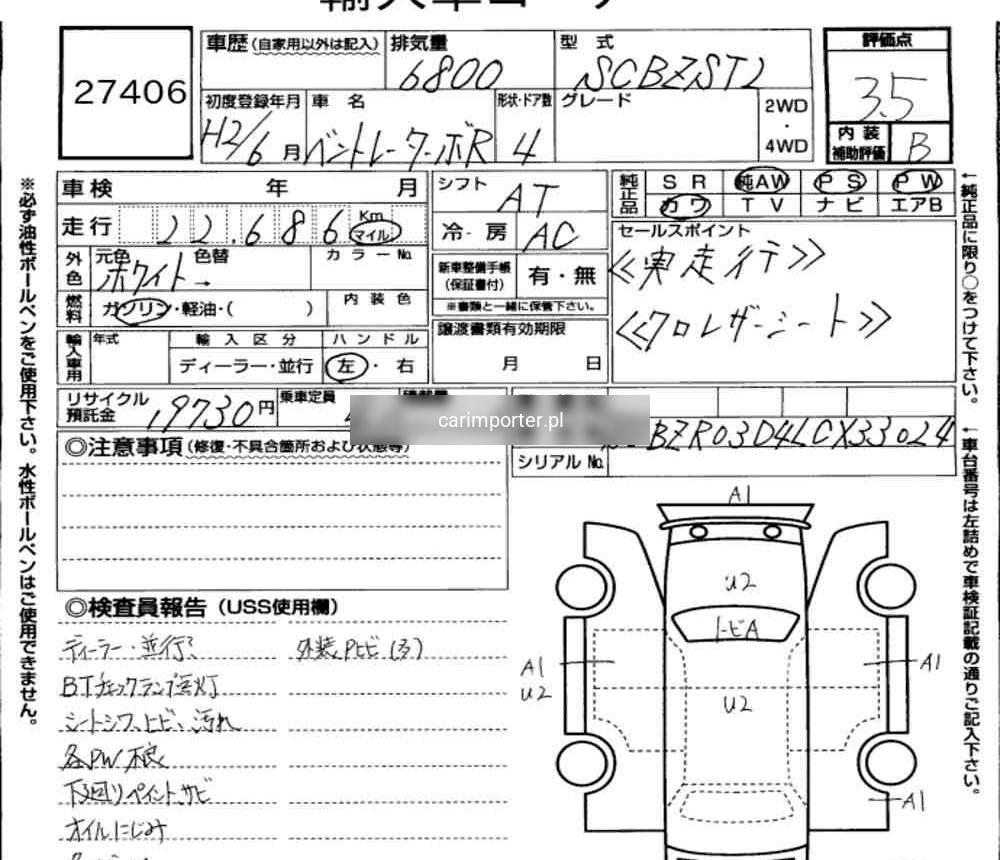 輸入車コーナー
27406
車歴(自家用以外は記入)
排気量 6800
型式
評価点 3.5
初度登録年月 H2/6月
車名 ベントレーターボR
形状・ドア数 4
グレード
2WD・4WD
内装補助評価 B
車検 年 月
シフト AT
純正品 SR 純AW PS PW
カワ TV ナビ エアB
走行 22.686 Km マイル
冷・房 AC
セールスポイント
≪実走行≫
≪クロレザーシート≫
外色 元色 ホワイト→ 色替 カラーNo.
新車整備手帳(保証書付) 有・無
※書類と一緒に保管下さい。
燃料 ガソリン・軽油・( ) 内装色
譲渡書類有効期限
月 日
輸入車用 年式 輸入区分 ハンドル
ディーラー・並行 左・右
リサイクル預託金 19730円
乗車定員
carimporter.pl
◎注意事項(修復・不具合箇所および状態等)
シリアルNo.
◎検査員報告(USS使用欄)
ディーラー・並行?
外装Pヒビ(ろ)
BTチェックランプ点灯
シートシワ、ヒビ、汚れ
各PW不良
下廻りペイント、サビ
オイルにじみ
A1
U2
トビA
U2
A1
U2
A1
A1
※必ず油性ボールペンをご使用下さい。水性ボールペンはご使用できません。
←純正品に限り○をつけて下さい。
←車台番号は左詰めで車検証記載の通りご記入下さい。